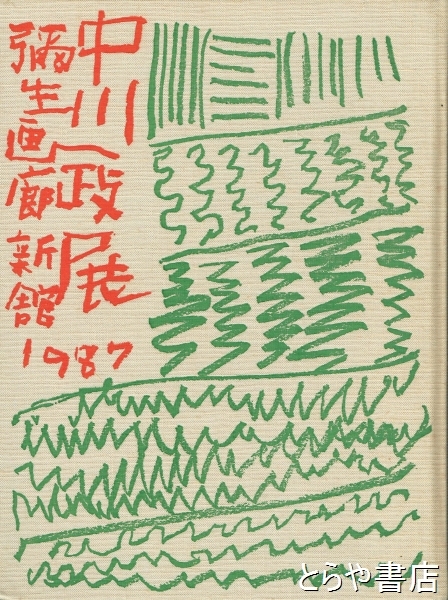 中川一政展
彌生画廊新館
1987
とらや書店